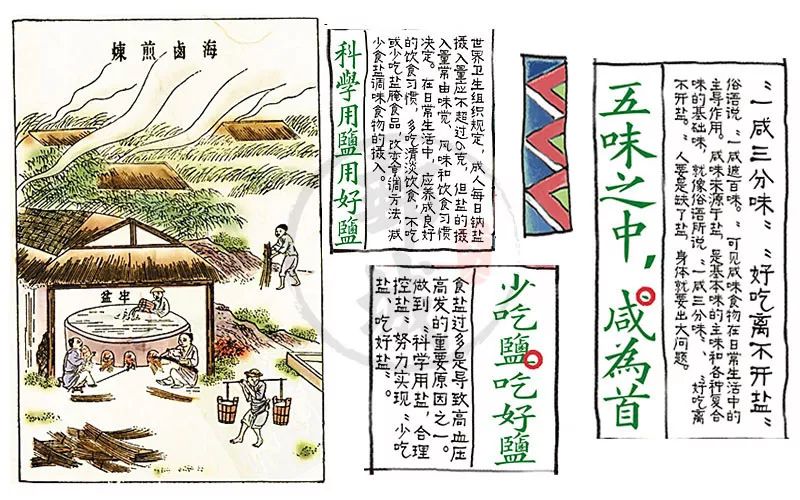 海鹵煎煉
牢盆
科學用鹽用好鹽
世界卫生组织规定，成人每日钠盐
摄入量应不超过6克，但盐的摄
入量常由味觉、风味和饮食习惯
决定。在日常生活中，应养成良好
的饮食习惯，多吃清淡饮食，不吃
或少吃盐腌食品，改变烹调方法，减
少食盐调味食物的摄入。
“一咸三分味”“好吃离不开盐”
俗语说“一咸遮百味。”可见咸味食物在日常生活中的
主导作用。咸味来源于盐，是基本味的主味和各种复合
味的基础味，就像俗语所说“一咸三分味”、“好吃离
不开盐。”人要是缺了盐，身体就要出大问题。
五味之中，咸為首
少吃鹽吃好鹽
食盐过多是导致高血压
高发的重要原因之一。
做到“科学用盐，合理
控盐”努力实现“少吃
盐 吃好盐”。